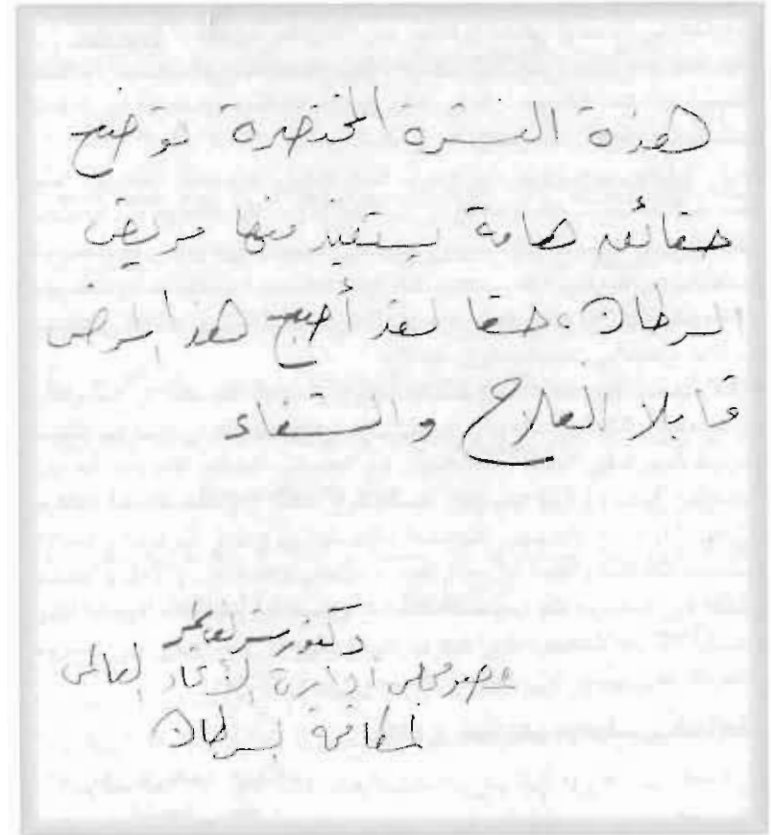 هذه النشرة المختصرة توضح
حقائق هامة يستفيد منها مريض
السرطان، حقا لقد أصبح هذا المرض
قابلا للعلاج والشفاء
دكتور شريف عمر
عضو مجلس أدارة الأتحاد العالمى
لمكافحة السرطان